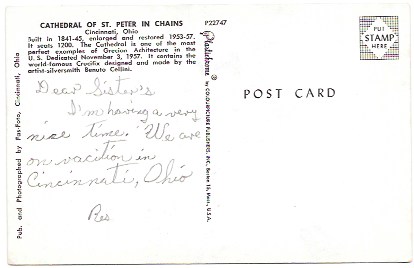 CATHEDRAL OF ST. PETER IN CHAINS
Cincinnati, Ohio
Built in 1841-45, enlarged and restored 1953-57.
It seats 1200. The Cathedral is one of the most
perfect examples of Grecian Achitecture in the
U.S. Dedicated November 3, 1957. It contains the
world-famous Crucifix designed and made by the
artist-silversmith Benuto Cellini.
Dear Sister's
I'm having a very
nice time. We are
on vacition in
Cincinnati, Ohio
Pub. and Photographed by Pan-Foto, Cincinnati, Ohio
P22747
Plastichrome ®
by COLOURPICTURE PUBLISHERS, INC., Boston 15, Mass., U.S.A.
POST CARD
PUT
STAMP
HERE